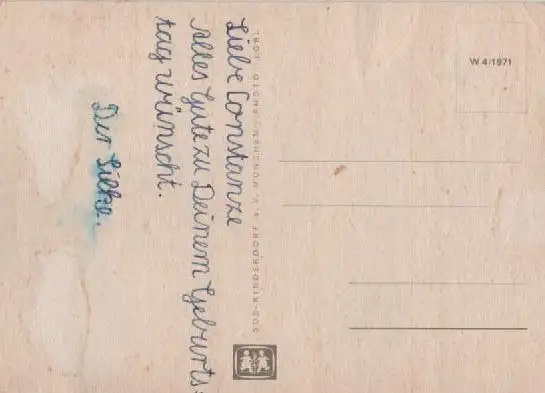 Liebe Constanze
Alles Gute zu Deinem Geburts-
tag wünscht.
Dir Silke.
SOS-KINDERDORF e.V. MÜNCHEN - PHOTO:
W 4/1971